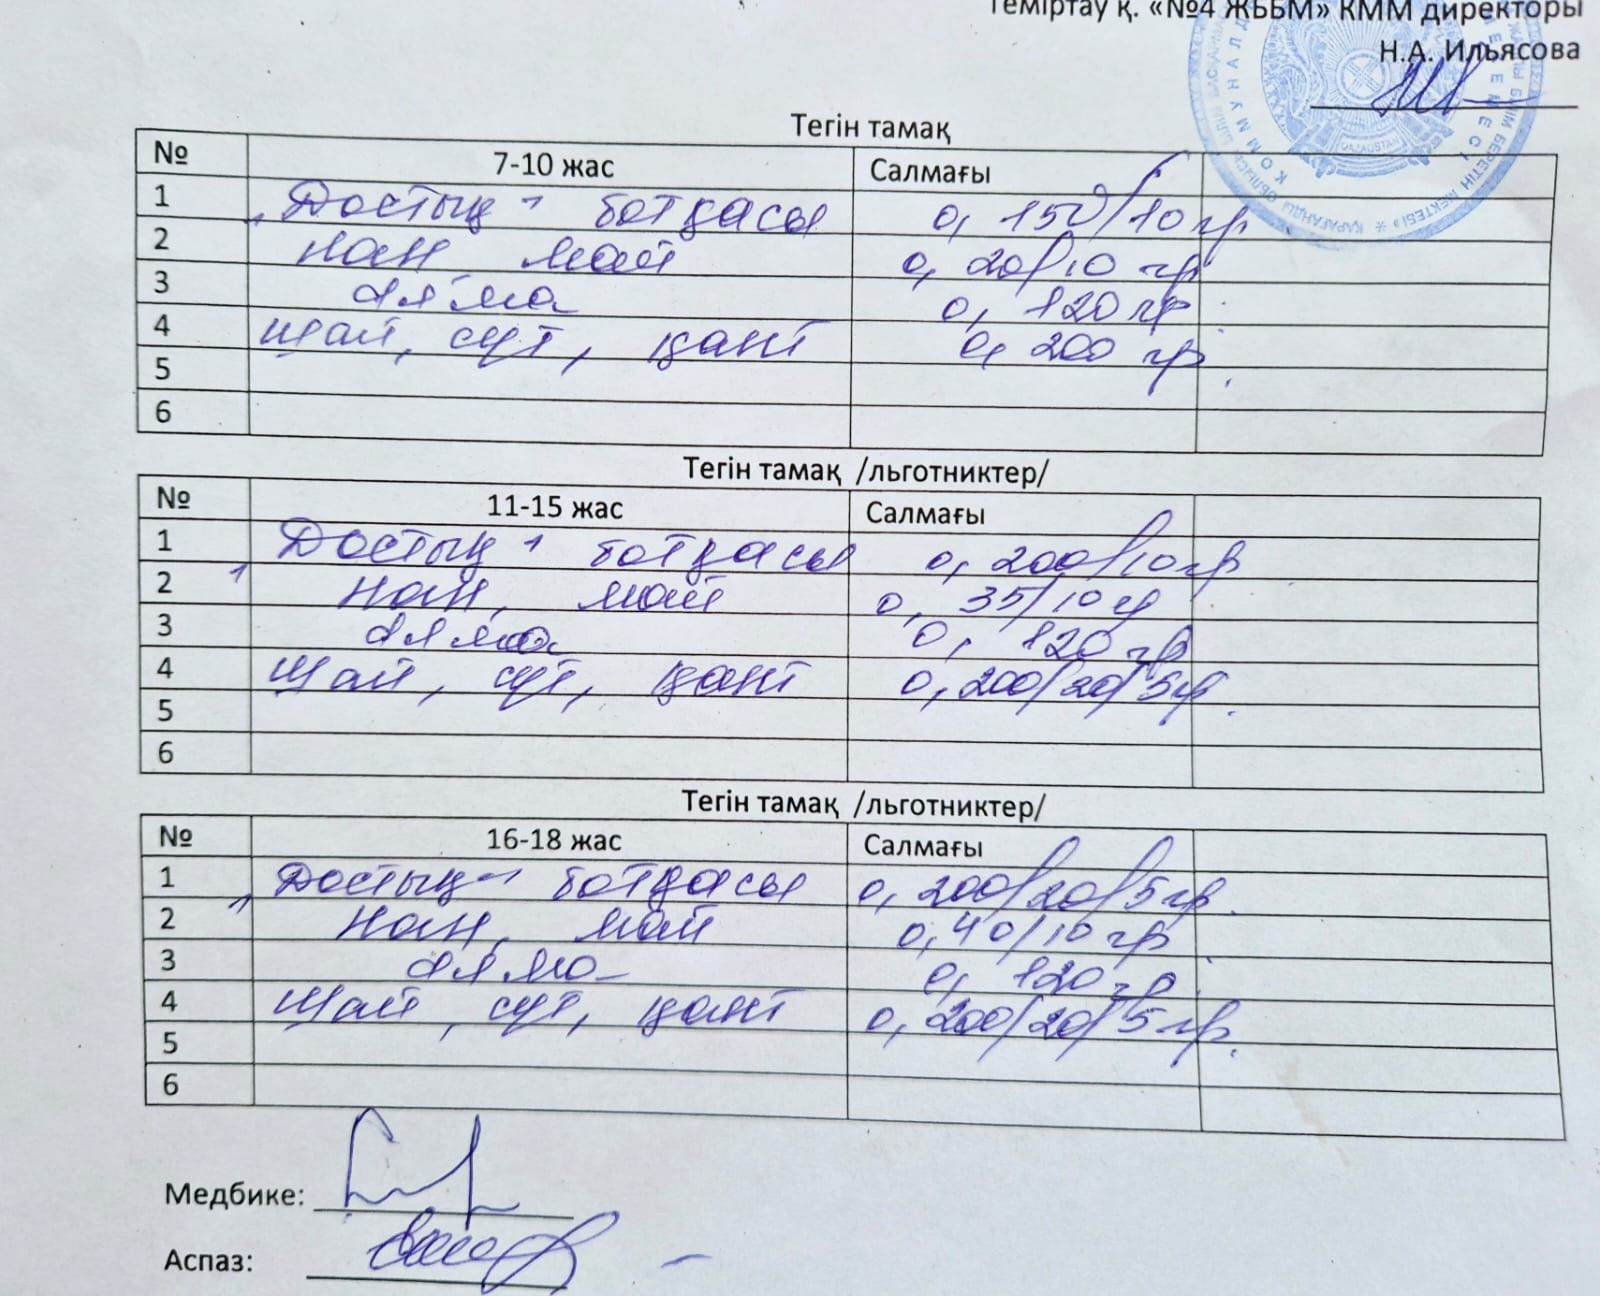 Теміртау қ. «№4 ЖББМ» КММ директоры
Н.А. Ильясова
Тегін тамақ
№ 7-10 жас Салмағы
1 "Достық" ботқасы 0, 150/10 гр
2 нан май 0, 20/10 гр
3 алма 0, 120 гр.
4 Шай, сүт, қант 0, 200 гр.
5
6
Тегін тамақ /льготниктер/
№ 11-15 жас Салмағы
1 "Достық" ботқасы 0, 200/10 гр
2 нан, май 0, 35/10 гр
3 алма 0, 120 гр
4 Шай, сүт, қант 0, 200/20/5 гр.
5
6
Тегін тамақ /льготниктер/
№ 16-18 жас Салмағы
1 "Достық" ботқасы 0, 200/20/5 гр.
2 нан, май 0, 40/10 гр.
3 алма 0, 120 гр.
4 Шай, сүт, қант 0, 200/20/5 гр.
5
6
Медбике:
Аспаз:
QAZAQSTAN